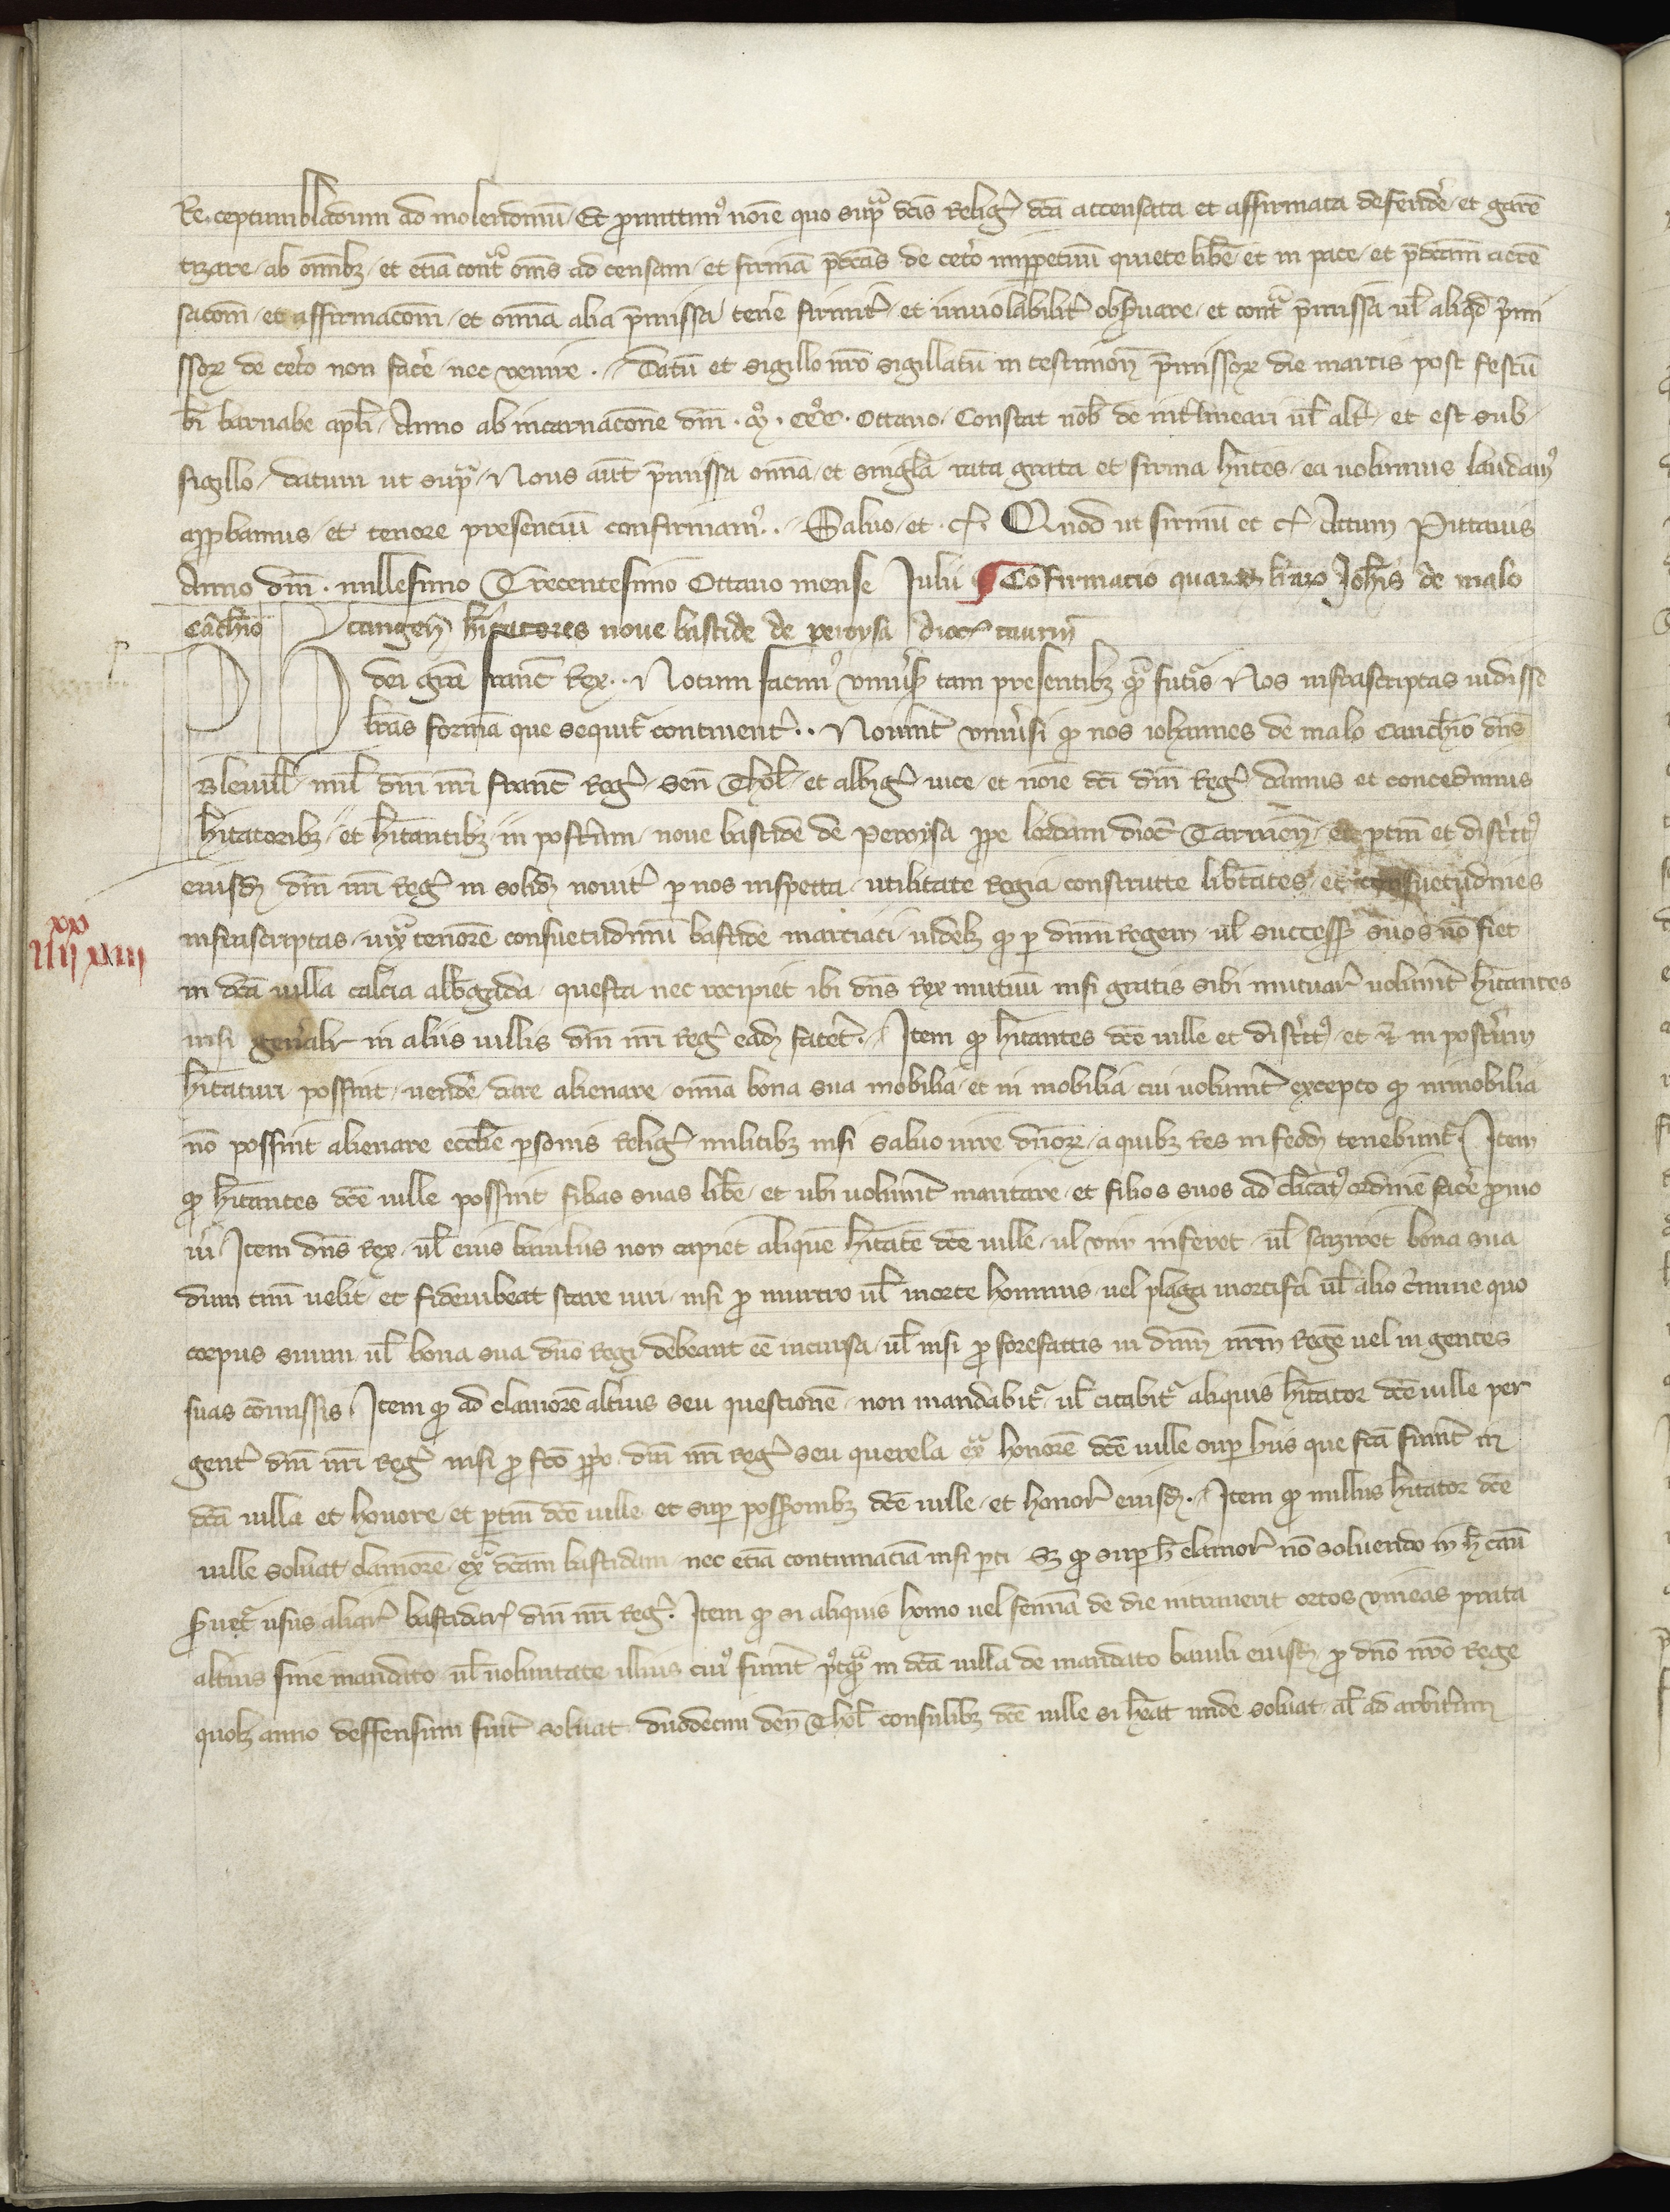 Re.ceptum bladum ad molendinū. Et promittimꝰ noīe quo supᵃ dc̄is religꝭ dc̄a accensata et affirmata defendē et garē
tizare ab omībꝫ et etiā contᵃ om̄s ad censam et firmā p̄dc̄as de cetō impetitū quiete lib̄e et in pace et p̄dc̄am accē
sacōm et affirmacōm et om̄ia alia p̄missa tenē firmit̄ et inviolabilit̄ obs̄vare et contᵃ p̄missa ul̄ aliqd̄ p̄mi
ssoꝝ de cetō non facē nec venire. Datū et sigillo nr̄o sigillatū in testimoniū p̄missoꝝ die martis post festū
bī barnabe apl̄i Anno ab incarnacōne dn̄i . mº. CCCº. Octavo. Constat nob̄ de int̄lineari ul̄ alt̄ et est sub
sigillo datum ut supᵃ. Nous aut̄ p̄missa om̄ia et singl̄a rata grata et firma hn̄tes ea volumus laudamꝰ
app̄bamus et tenore presenciū confirmamꝰ. Salvo et cꝭ. Quod ut firmū et cꝭ Actum Pictavis
Anno dn̄i . millesimo Trecentesimo Octavo mense Julii ¶ Cōfirmacio quarūdꝫ lr̄aꝝ Joh̄is de malo
Cāch̄io tangen̄ h̄itatores nove bastide de peroysa dioc̄ tarvin̄
Ph dei grā franc̄ Rex. Notum facimꝰ univ̄sꝭ tam presentibꝫ qᵃ futīs Nos infrascriptas vidisse
lr̄as formā que sequit̄ continentꝭ. Noverint univ̄si qd̄ nos iohannes de malo Canch̄io dn̄s
Blevill̄ mil̄ dn̄i nr̄i franc̄ Regꝭ Sen̄ Thol̄ et albigꝭ vice et noīe dc̄i dn̄i Regꝭ damus et concedimus
h̄itatoribꝫ et h̄itantibꝫ in post̄um nove bastide de Peroysa ꝓpe lordam dioc̄ Tarvien̄ et ptin̄ et districtꝰ
eiusdꝫ dn̄i nr̄i Regꝭ in solidꝫ novit̄ p nos inspecta utilitate Regia constructe lib̄tates et consuetudines
infrascriptas iuxᵃ tenorē consuetudinū bastide marciaci videlꝫ qd̄ p dn̄m regem ul̄ successoꝭ suos nō fiet
in dc̄a villa talh̄ia alb̄gada questa nec recipiet ibi dn̄s Rex mutuū nisi gratis sibi mutuaꝭ volūint h̄itantes
nisi gen̄alr̄ in aliis villis dn̄i nr̄i Regꝭ eadꝫ facēt. Item qd̄ h̄itantes dc̄e ville et districtꝰ et in post̄um
h̄itaturi possint vendē dare alienare om̄ia bona sua mobilia et in mobilia cui volūint excepto qd̄ inmobilia
nō possint alienare eccl̄ie p̄sonis Religꝭ militibꝫ nisi salvo iure dn̄oꝝ a quibꝫ Res in feodꝫ tenebunt̄. Item
qd̄ h̄itantes dc̄e ville possint filias suas lib̄e et ubi volūint maritare et filios suos ad cl̄icatꝰ ordinē facē ꝓmo
vī Item dn̄s Rex ul̄ eius baiulus non capiet aliquē h̄itātē dc̄e ville ul̄ vim inferet ul̄ saziret bona sua
dum tn̄ velit et fideiubeat stare iuri nisi ꝓ murtro ul̄ morte hominis vel plaga mortifā ul̄ alio c̄imine quo
corpus suum ul̄ bona sua dn̄o Regi debeant ēe incursa ul̄ nisi ꝓ forefactis in dn̄m nr̄m Regē vel in gentes
suas cōmissis Item qd̄ ad clamorē alt̄ius seu questionē non mandabit̄ ul̄ citabit̄ aliquis h̄itator dc̄e ville per
gentꝭ dn̄i nr̄i Regꝭ nisi ꝓ fc̄o ꝓprio dn̄i nr̄i Regꝭ seu querela exᵃ honorē dc̄e ville sup hiis que fc̄a fuint in
dc̄a villa et honore et ptin̄ dc̄e ville et sup possessionibꝫ dc̄e ville et honorꝭ eiusdꝫ. Item qd̄ nullus h̄itator dc̄e
ville solvat clamorē exᵃ dc̄am bastidam nec etiā contumaciā nisi pti sꝫ qd̄ sup h̄ clamorꝭ nō solvendo in h̄ cāu
s̄vet̄ usus aliaꝝ bastidaꝝ dn̄i nr̄i Regꝭ. Item qd̄ si aliquis homo vel femīa de die intraverit ortos vineas prata
alt̄ius sine mandato ul̄ voluntate illius cuiꝰ fuint pꝰtqᵃ in dc̄a villa de mandato baiuli eiusdꝫ ꝓ dn̄o nr̄o Rege
quolꝫ anno deffensum fuit̄ solvat duodecim den̄ Thol̄ consulibꝫ dc̄e ville si h̄eat unde solvat al̄ ad arbitriū
xx
iiii xiiii